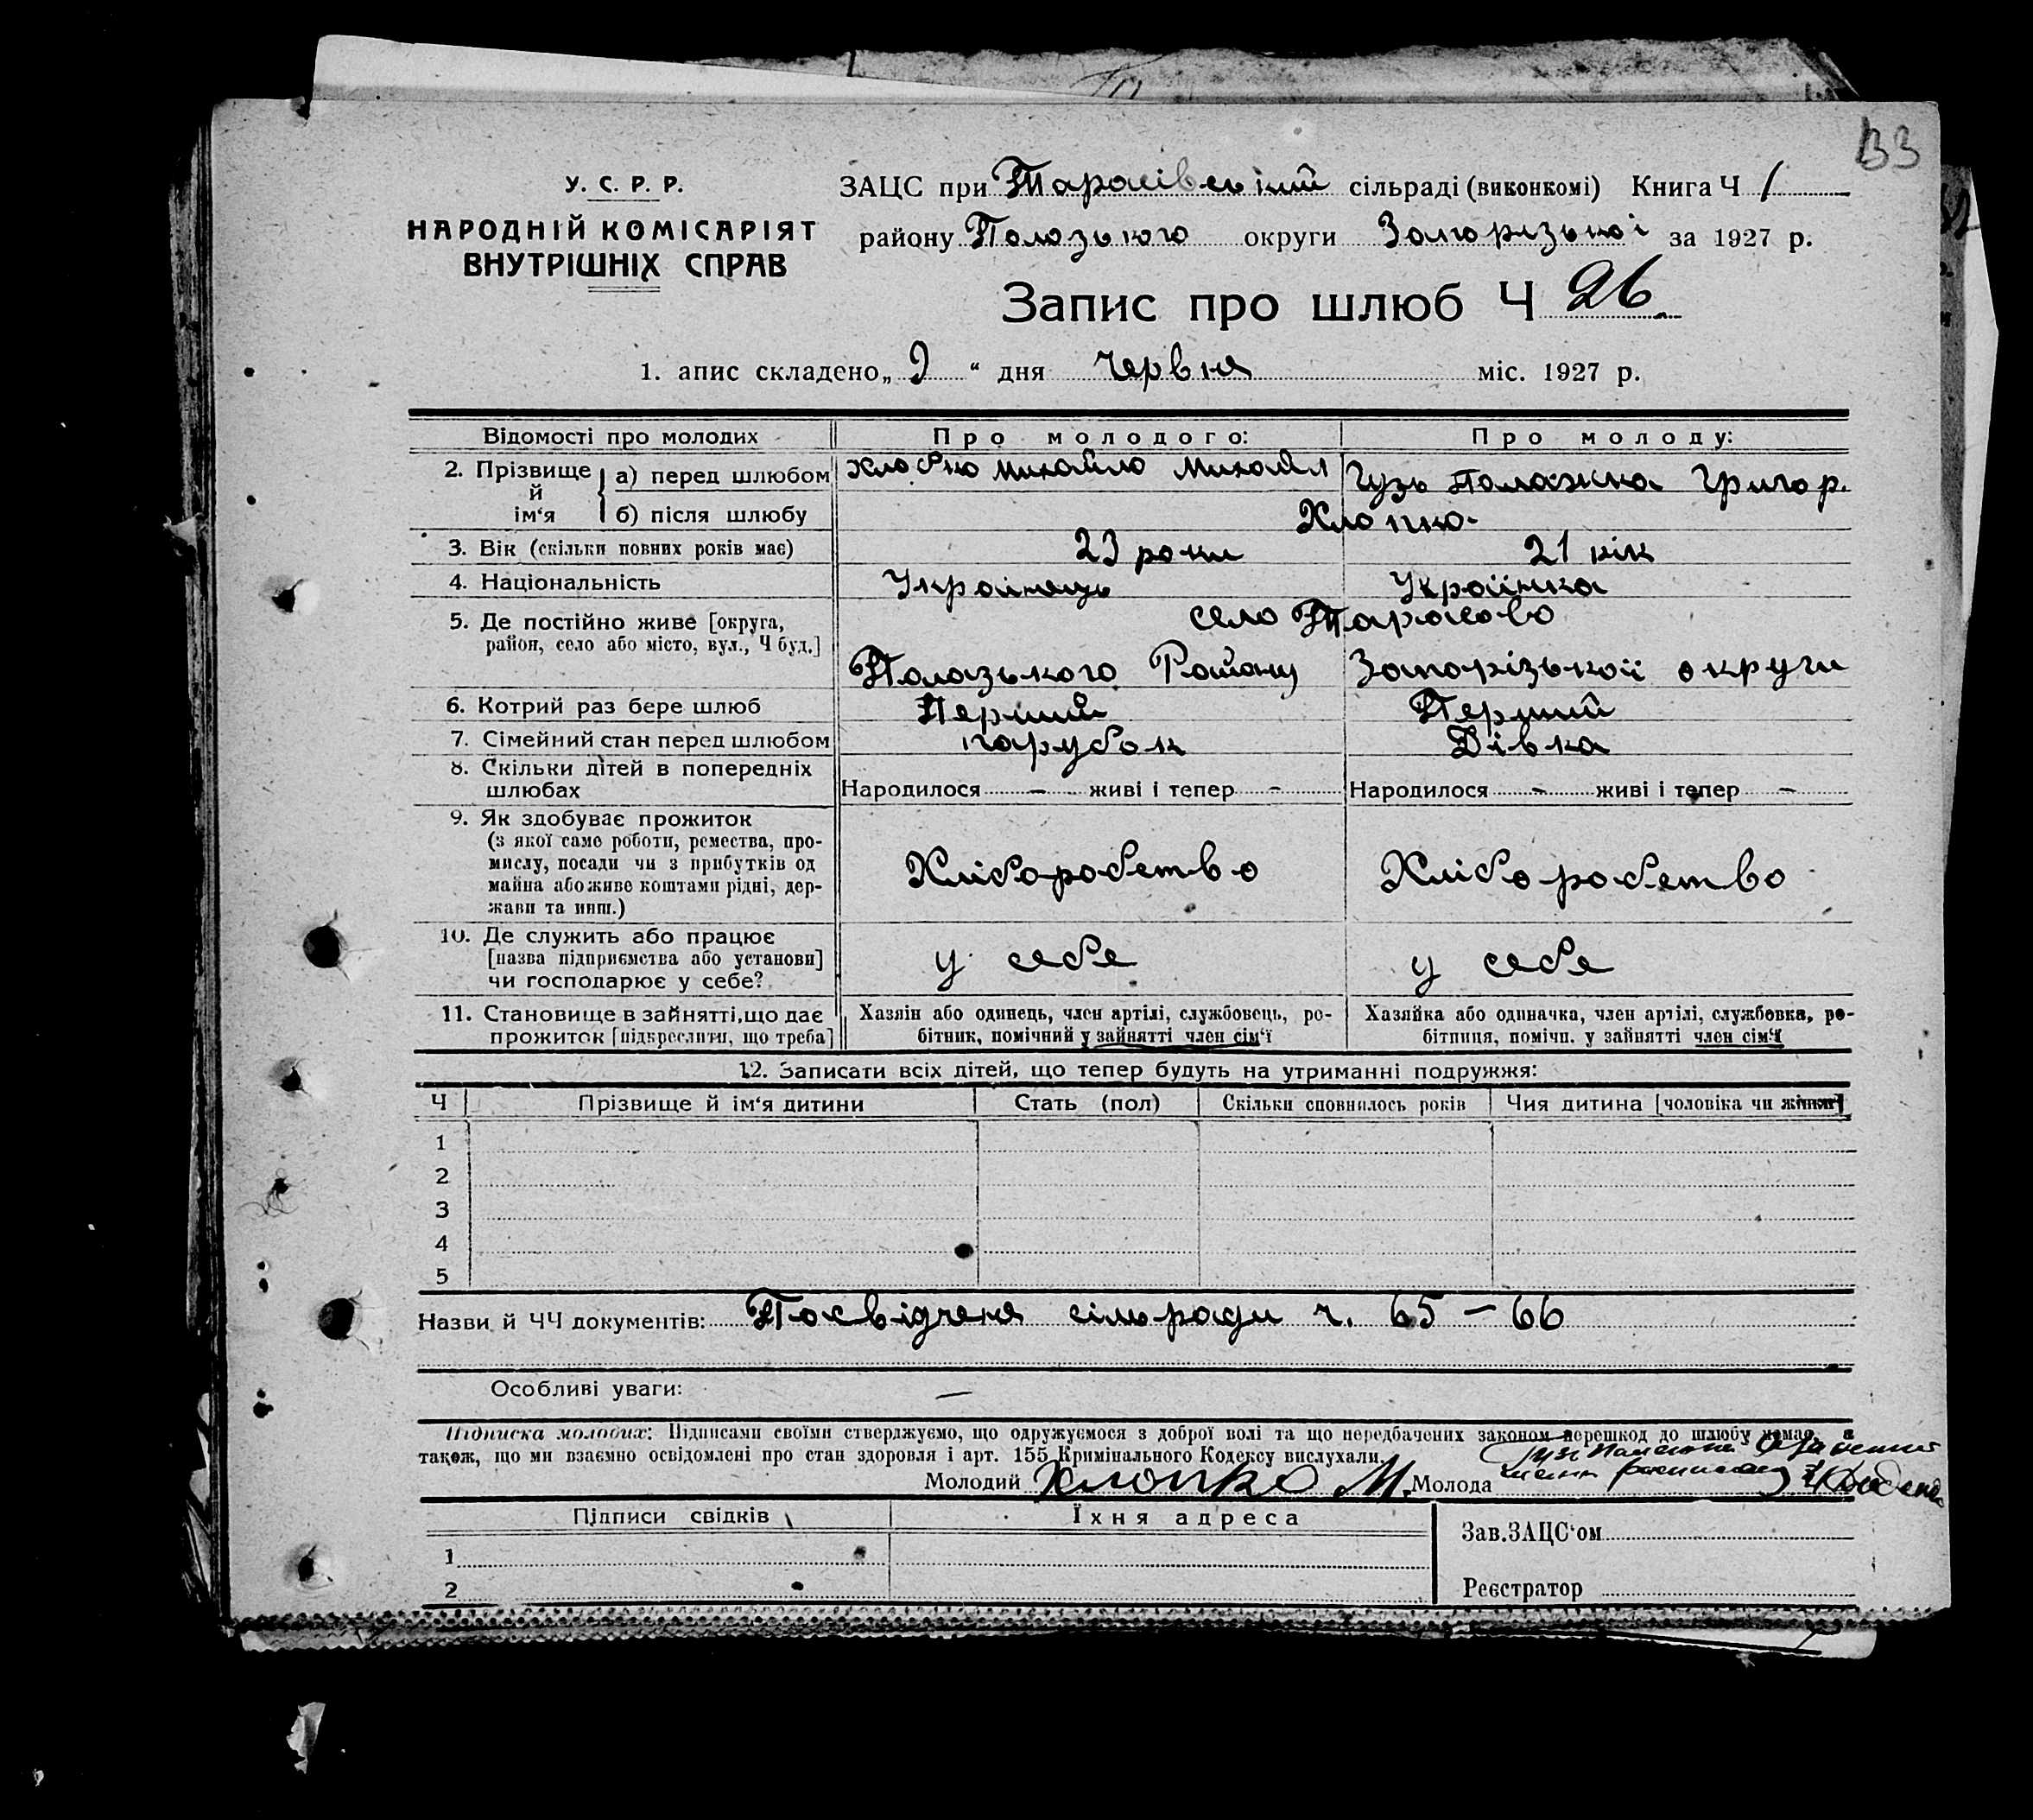 33
У. С. Р. Р.
НАРОДНІЙ КОМІСАРІЯТ
ВНУТРІШНІХ СПРАВ
ЗАЦС при Тарасівській сільраді (виконкомі) Книга Ч 1
району Полозького округи Запорізької за 1927 р.
Запис про шлюб Ч 26
1. апис складено „ 2 “ дня червня міс. 1927 р.
Відомості про молодих Про молодого: Про молоду:
2. Прізвище й ім‘я а) перед шлюбом Михайло Михайл Гузь Палажка Григор.
б) після шлюбу Хлопко
3. Вік (скільки повних років має) 23 роки 21 рік
4. Національність Українець Українка
5. Де постійно живе [округа, село Тарасово
район, село або місто, вул., Ч буд.] Полозького Району Запорізької округи
6. Котрий раз бере шлюб Перший Перший
7. Сімейний стан перед шлюбом парубок Дівка
8. Скільки дітей в попередніх
шлюбах Народилося – живі і тепер – Народилося – живі і тепер –
9. Як здобуває прожиток
(з якої само роботи, ремества, про-
мислу, посади чи з прибутків од
майна або живе коштами рідні, дер-
жави та инш.) Хліборобство Хліборобство
10. Де служить або працює
[назва підприємства або установи]
чи господарює у себе? у себе у себе
11. Становище в зайнятті, що дає
прожиток [підкреслити, що треба]
Хазяін або одинець, член артілі, службовець, ро-
бітник, помічний у зайнятті член сім‘ї
Хазяйка або одиначка, член артілі, службовка, ро-
бітниця, помічн. у зайнятті член сім‘ї
12. Записати всіх дітей, що тепер будуть на утриманні подружжя:
Ч Прізвище й ім‘я дитини Стать (пол) Скільки сповнилось років Чия дитина [чоловіка чи жінки]
1
2
3
4
5
Назви й ЧЧ документів: Посвідченя сільради ч. 65 – 66
Особливі уваги: —
Підписка молодих: Підписами своїми стверджуємо, що одружуємося з доброї волі та що передбачених законом перешкод до шлюбу немає, а
також, що ми взаємно освідомлені про стан здоровля і арт. 155 Кримінального Кодексу вислухали.
Молодий Хлопко М. Молода
Підписи свідків Їхня адреса
1
2
Зав.ЗАЦС‘ом
Реєстратор